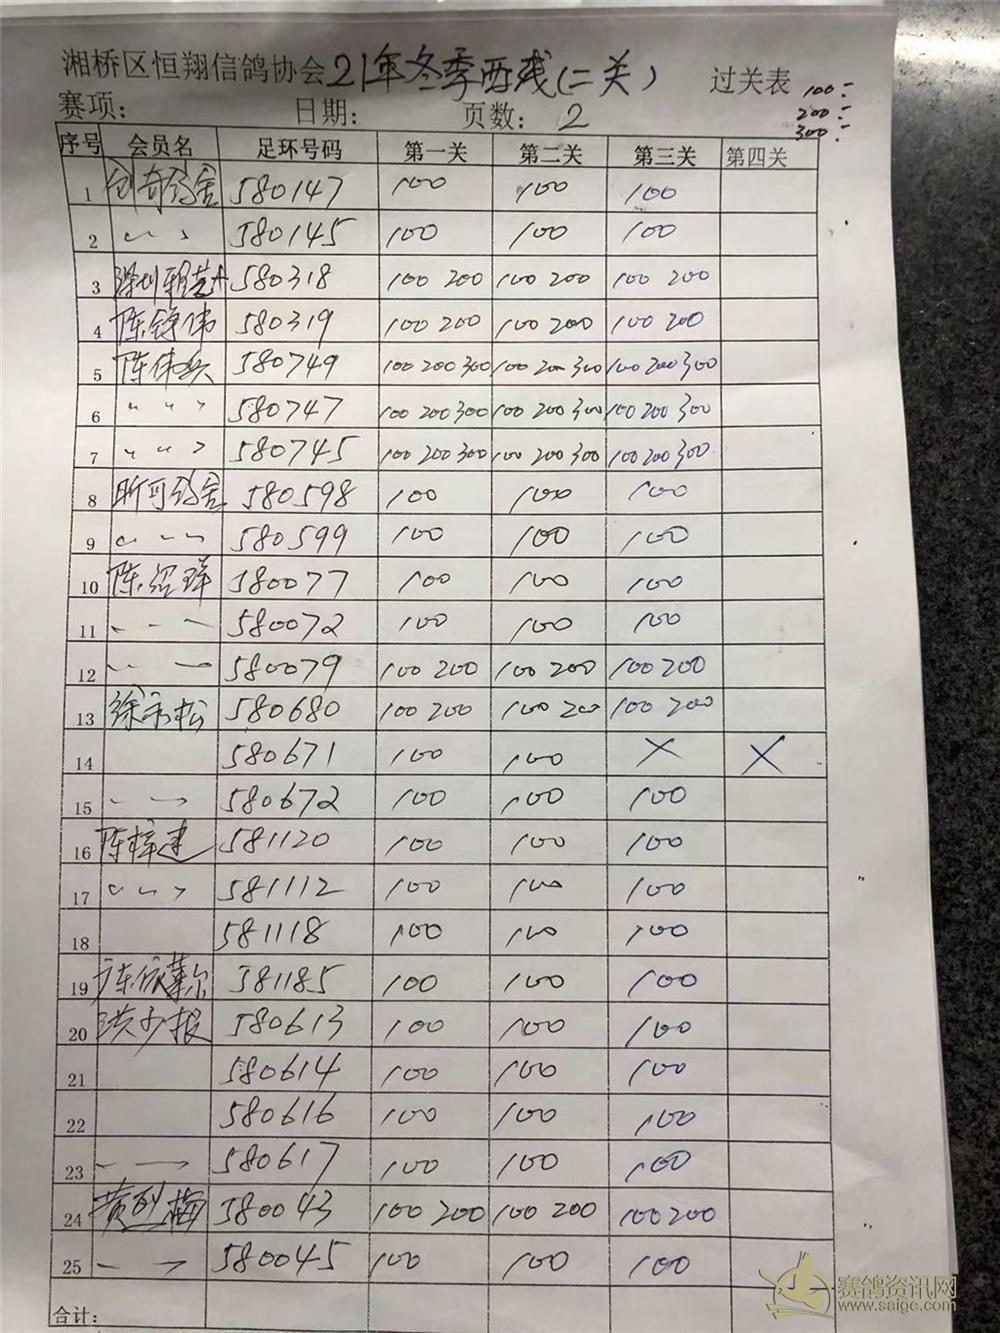 湘桥区恒翔信鸽协会21年冬季两线(二关) 过关表
100:
200:
300:
赛项: 日期: 页数: 2
序号 会员名 足环号码 第一关 第二关 第三关 第四关
1 创奇鸽舍 580147 100 100 100
2 〃 580145 100 100 100
3 580318 100 200 100 200 100 200
4 陈锦伟 580319 100 200 100 200 100 200
5 陈伟兴 580749 100 200 300 100 200 300 100 200 300
6 〃 580747 100 200 300 100 200 300 100 200 300
7 〃 580745 100 200 300 100 200 300 100 200 300
8 昕可鸽舍 580598 100 100 100
9 〃 580599 100 100 100
10 陈绍锋 580077 100 100 100
11 〃 580072 100 100 100
12 〃 580079 100 200 100 200 100 200
13 徐永松 580680 100 200 100 200 100 200
14 580671 100 100 × ×
15 〃 580672 100 100 100
16 陈梓建 581120 100 100 100
17 〃 581112 100 100 100
18 581118 100 100 100
19 581185 100 100 100
20 洪少报 580613 100 100 100
21 580614 100 100 100
22 580616 100 100 100
23 〃 580617 100 100 100
24 黄烈梅 580043 100 200 100 200 100 200
25 〃 580045 100 100 100
合计:
赛鸽资讯网
www.saigc.com